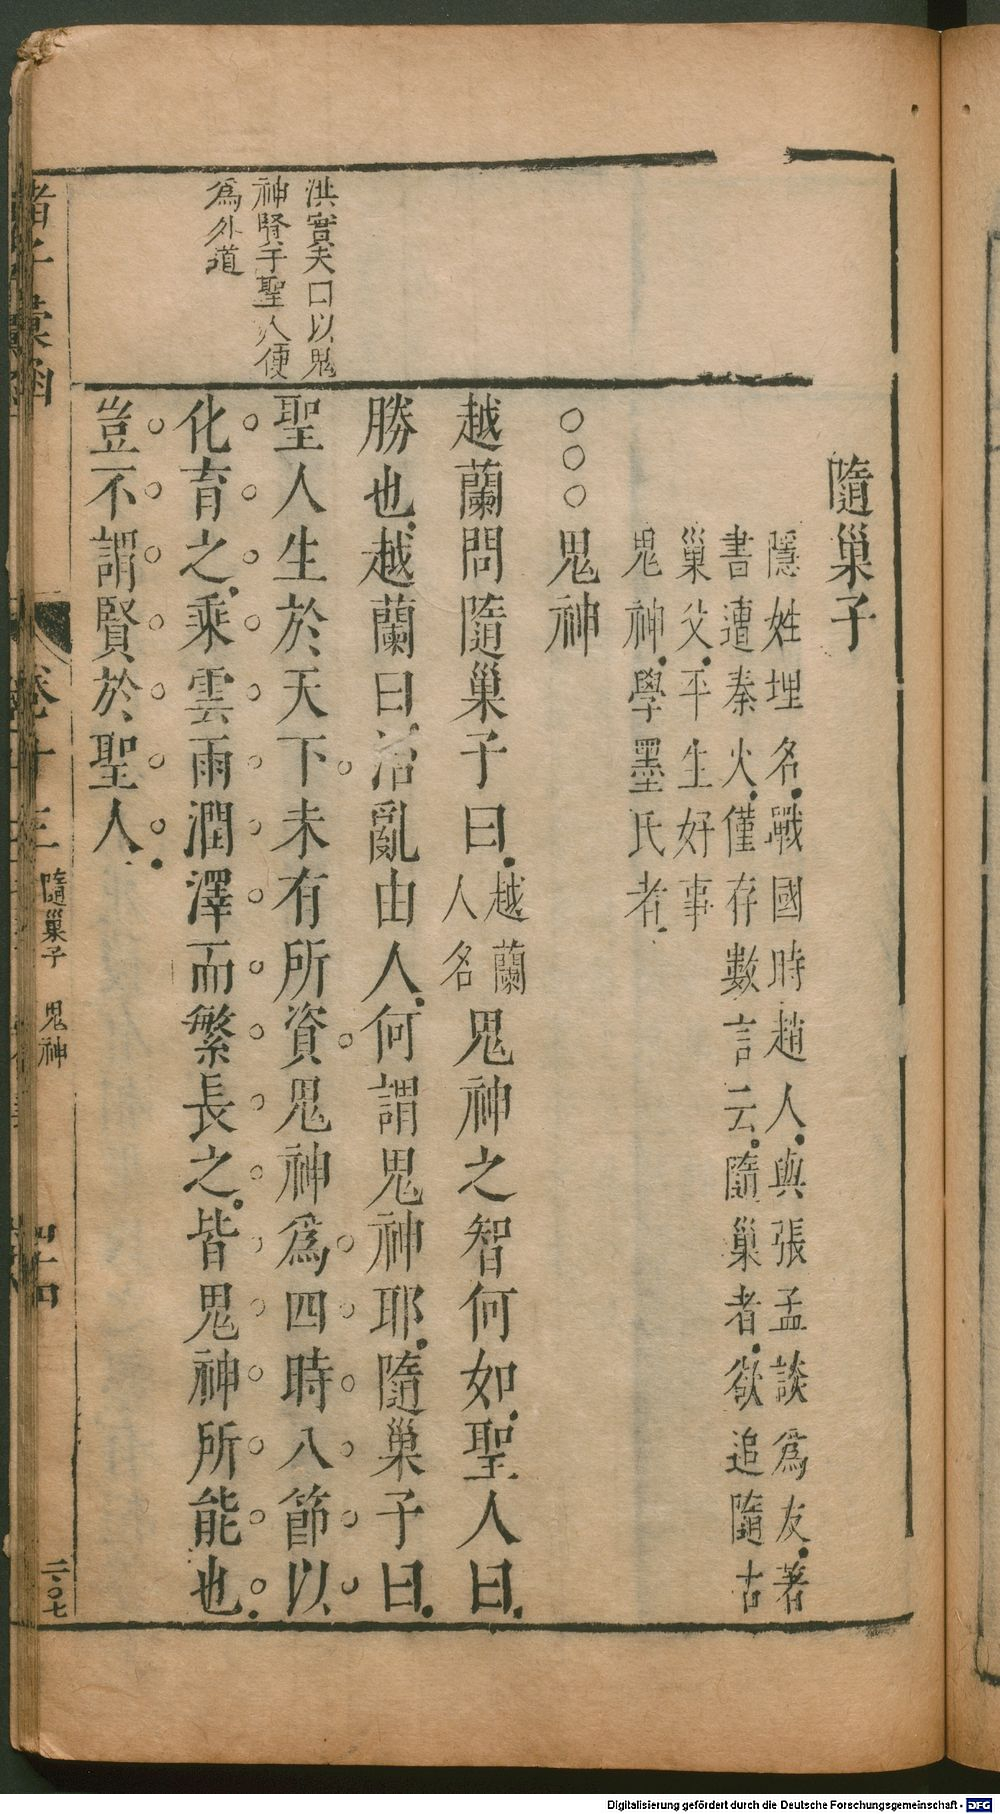 隨巢子
隱姓埋名戰國時趙人與張孟談爲友著
書遭秦火僅存數言云隨巢者欲追隨古
巢父平生好事
鬼神學墨氏者
○○○鬼神
越蘭問隨巢子曰越蘭人名鬼神之智何如聖人曰
勝也越蘭曰治亂由人何謂鬼神耶隨巢子曰
聖人生於天下未有所資鬼神爲四時八節以
化育之乘雲雨潤澤而繁長之皆鬼神所能也
豈不謂賢於聖人
洪實夫口以鬼
神賢于聖人便
爲外道
諸子彙函
卷十三
隨巢子 鬼神
四十四
二〇七
Digitalisierung gefördert durch die Deutsche Forschungsgemeinschaft - DFG